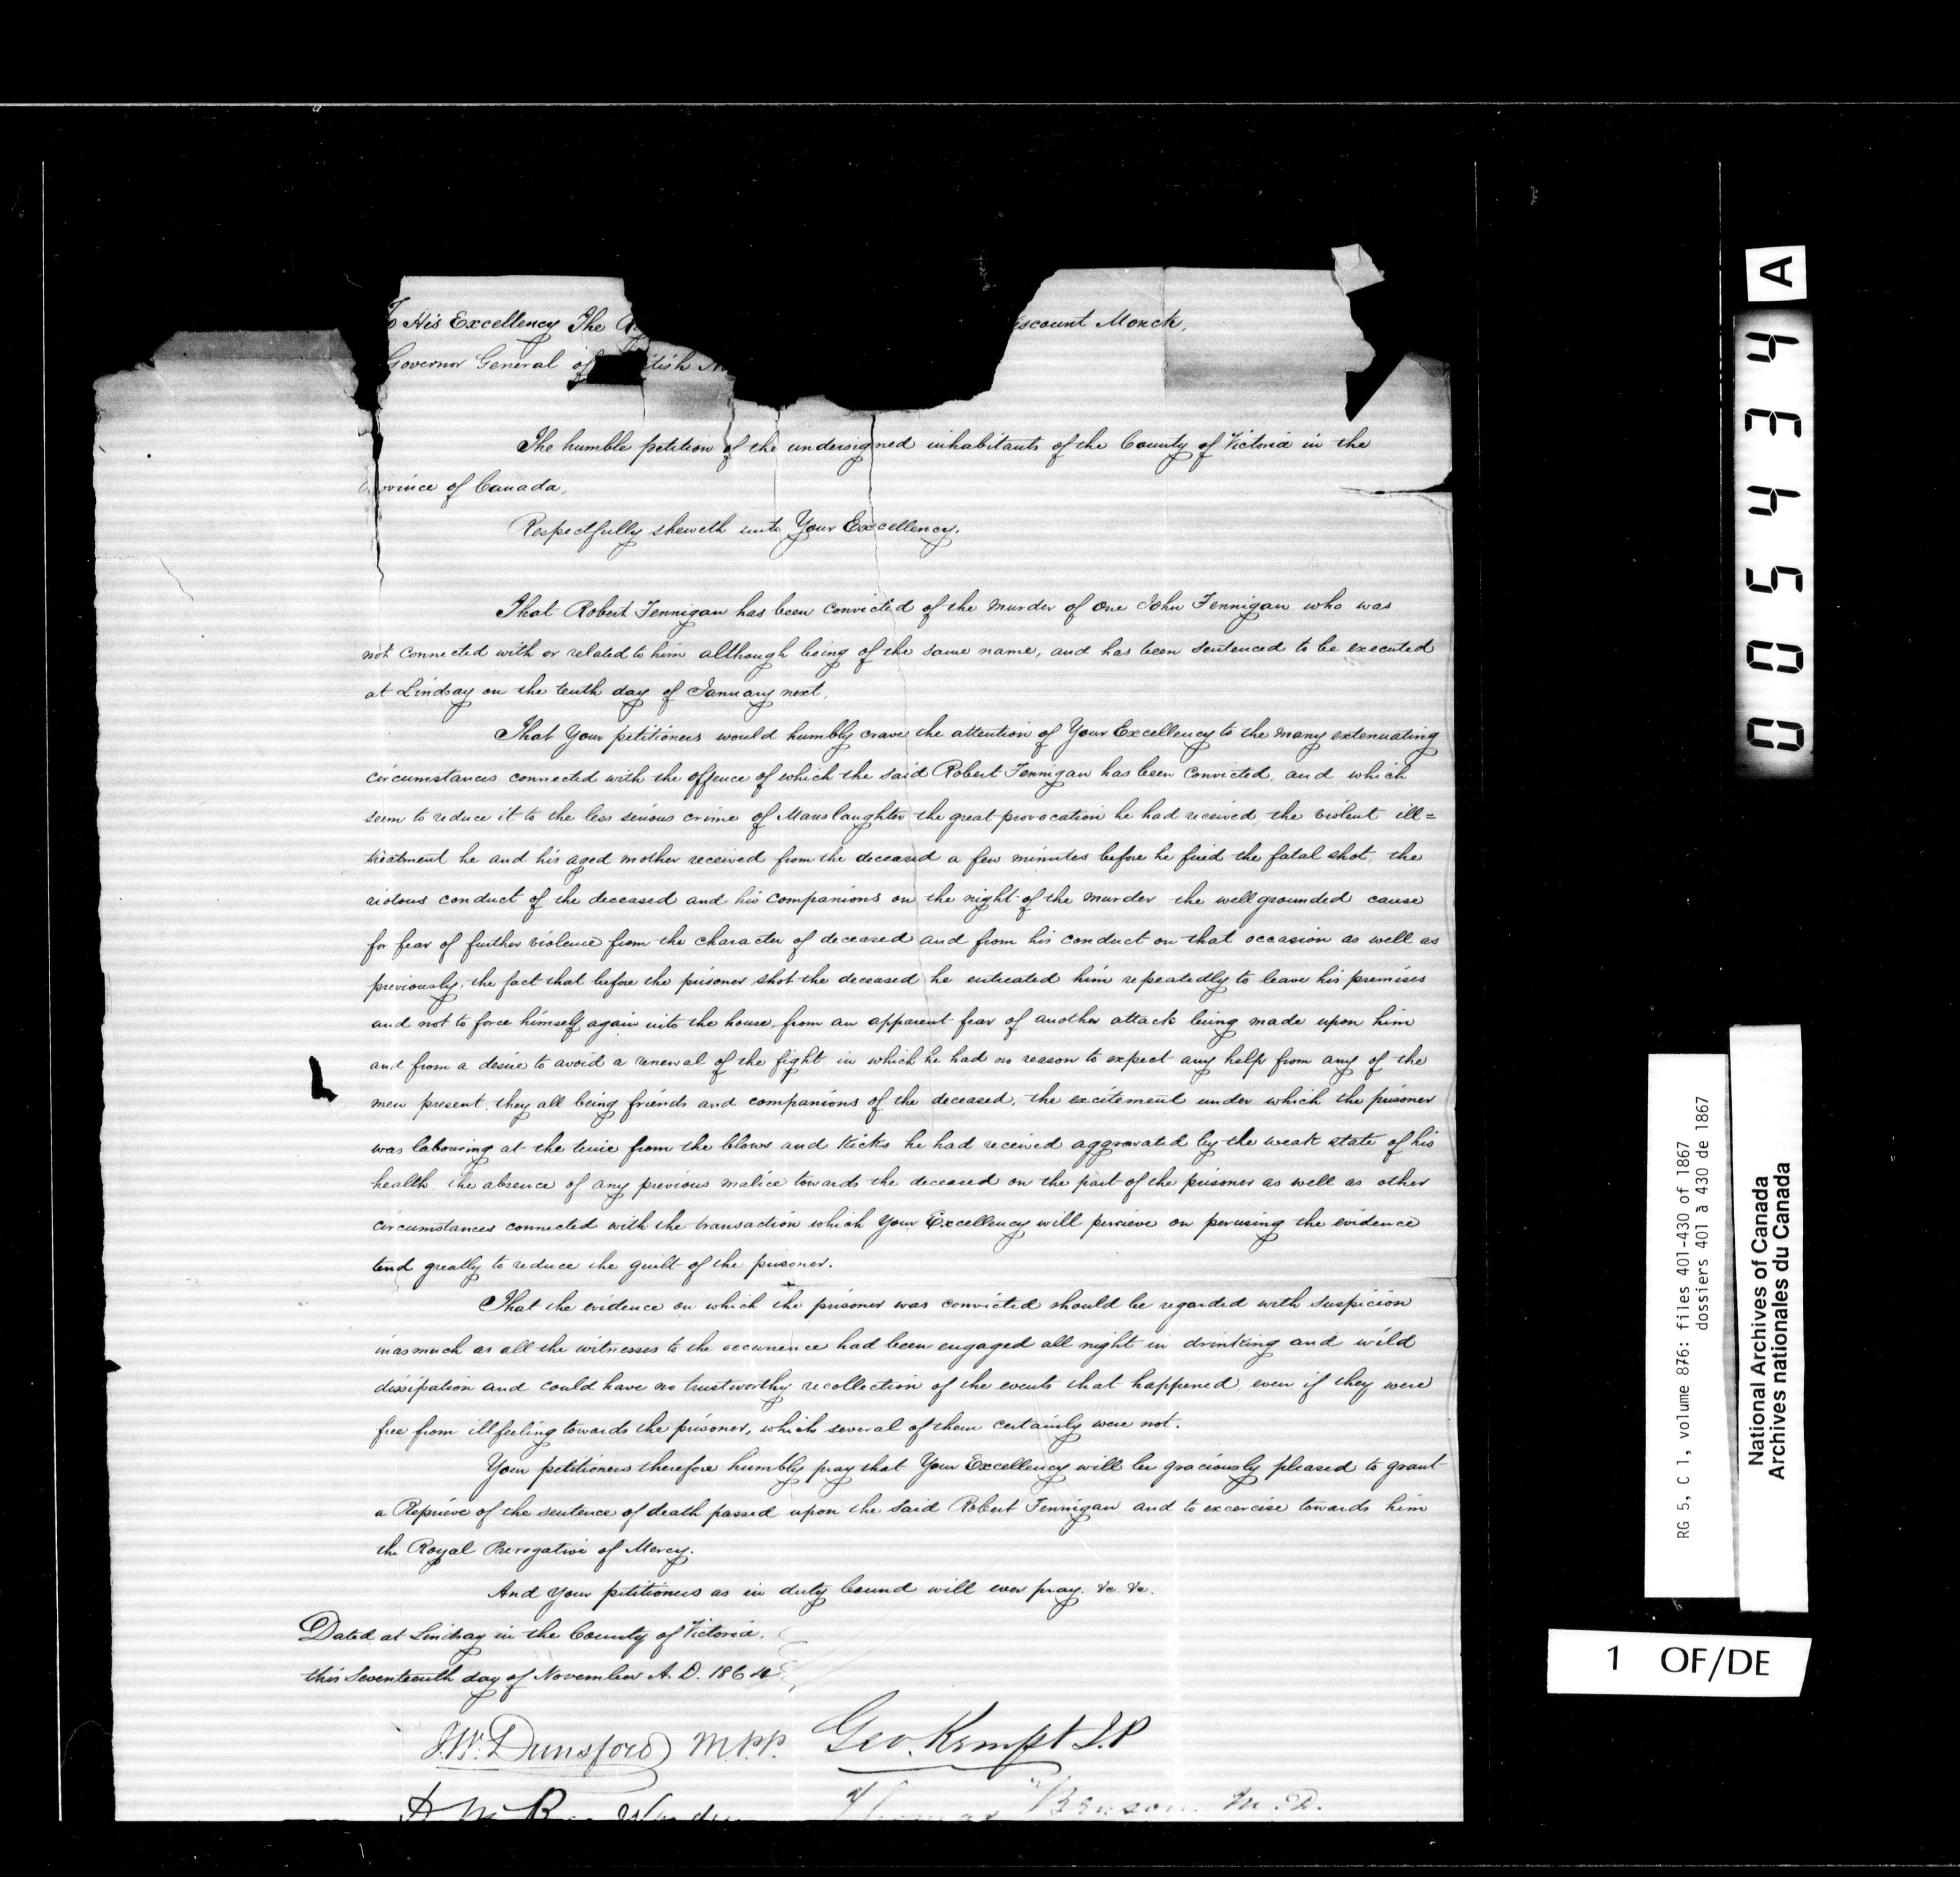 To His Excellency The
iscount Monck,
Governor General of itish
The humble petition of the undersigned inhabitants of the County of Victoria in the
rovince of Canada,
Respectfully sheweth unto Your Excellency.
That Robert Fennigan has been convicted of the Murder of one John Fennigan who was
not connected with or related to him although being of the same name, and has been sentenced to be executed
at Lindsay on the tenth day of January next,
That Your petitioners would humbly crave the attention of Your Excellency to the many extenuating
circumstances connected with the offence of which the said Robert Fennigan has been convicted, and which
seem to reduce it to the less serious crime of Manslaughter the great provocation he had received, the violent ill=
treatment he and his aged mother received from the deceased a few minutes before he fired the fatal shot, the
riotous conduct of the deceased and his companions on the night of the murder the well grounded cause
for fear of further violence from the character of deceased and from his conduct on that occasion as well as
previously, the fact that before the prisoner shot the deceased he entreated him repeatedly to leave his premises
and not to force himself again into the house, from an apparent fear of another attack being made upon him
and from a desire to avoid a renewal of the fight in which he had no reason to expect any help from any of the
men present, they all being friends and companions of the deceased, the excitement under which the prisoner
was labouring at the time from the blows and kicks he had received aggravated by the weak state of his
health, the absence of any previous malice towards the deceased on the part of the prisoner as well as other
circumstances connected with the transaction which Your Excellency will percieve on perusing the evidence
tend greatly to reduce the guilt of the prisoner.
That the evidence on which the prisoner was convicted should be regarded with suspicion
inasmuch as all the witnesses to the occurrence had been engaged all night in drinking and wild
dissipation and could have no trustworthy recollection of the events that happened even if they were
free from ill feeling towards the prisoner, which several of them certainly were not.
Your petitioners therefore humbly pray that Your Excellency will be graciously pleased to grant
a Reprieve of the sentence of death passed upon the said Robert Fennigan and to excercise towards him
the Royal Prerogative of Mercy.
And Your petitioners as in duty bound will ever pray. &c. &c.
Dated at Lindsay in the County of Victoria,
this Seventeenth day of November A.D. 1864
J.W. Dunsford M.P.P. Geo. Kempt J.P
Thomas Benson M.D.
A
005434
RG 5, C 1, volume 876: files 401-430 of 1867
dossiers 401 à 430 de 1867
National Archives of Canada
Archives nationales du Canada
1 OF/DE